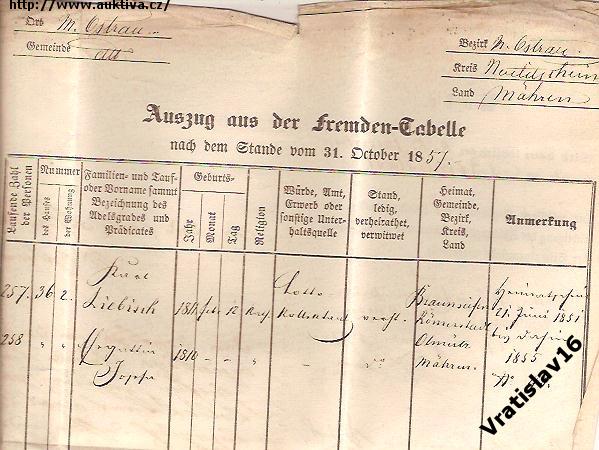 http://www.auktiva.cz/
Ort M. Ostrau
Gemeinde dtto
Bezirk M. Ostrau
Kreis
Land Mähren
Auszug aus der Fremden-Tabelle
nach dem Stande vom 31. October 1857.
Laufende Zahl der Personen
Nummer
des Hauses
der Wohnung
Familien- und Tauf- oder Vorname sammt Bezeichnung des Adelsgrades und Prädicates
Geburts-
Jahr
Monat
Tag
Religion
Würde, Amt, Erwerb oder sonstige Unterhaltsquelle
Stand, ledig, verheirathet, verwitwet
Heimat, Gemeinde, Bezirk, Kreis, Land
Anmerkung
257. 36 2. Karl Liebisch 12 Lotto verh. Braunseifen Römerstadt Olmütz Mähren Heimatschein 21 Juni 1851
258 " " 1816 - - " - 1855
Vratislav16